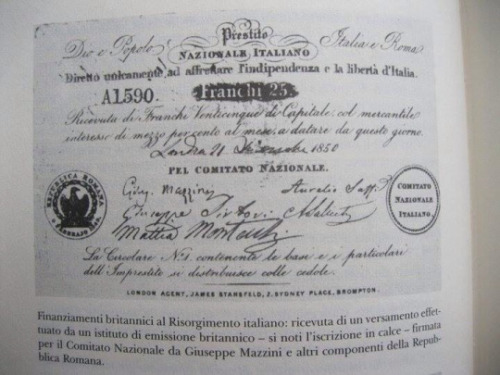 Prestito
Dio e Popolo NAZIONALE ITALIANO Italia e Roma
Diretto unicamente ad affrettare l'indipendenza e la libertà d'Italia.
A1590. Franchi 25.
Ricevuta di Franchi Venticinque di Capitale, col mercantile
interesse di mezzo per cento al mese, a datare da questo giorno.
Londra 21 1850
PEL COMITATO NAZIONALE.
REPUBBLICA ROMANA
Gius. Mazzini Aurelio Saffi
COMITATO
NAZIONALE
ITALIANO.
Giuseppe Sirtori
Mattia Montecchi
La Circolare N.1 contenente le basi e i particolari
dell'Imprestito si distribuisce colle cedole.
LONDON AGENT, JAMES STANSFELD, 2, SYDNEY PLACE, BROMPTON.
Finanziamenti britannici al Risorgimento italiano: ricevuta di un versamento effet-
tuato da un istituto di emissione britannico – si noti l'iscrizione in calce – firmata
per il Comitato Nazionale da Giuseppe Mazzini e altri componenti della Repub-
blica Romana.